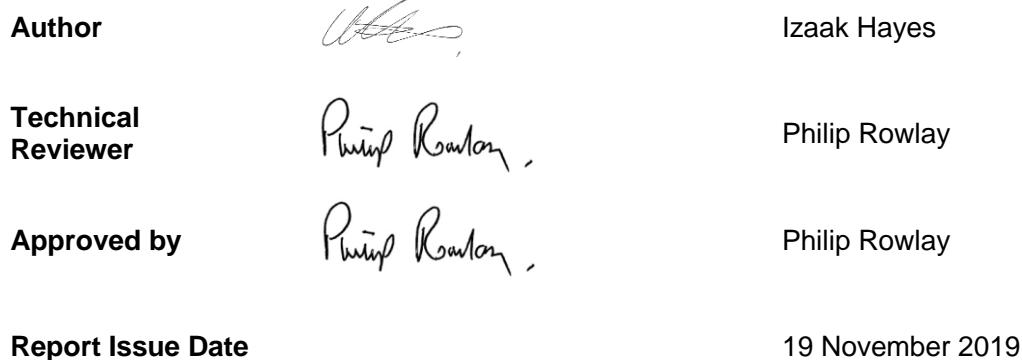 Author Izaak Hayes
Technical
Reviewer Philip Rowlay Philip Rowlay
Approved by Philip Rowlay Philip Rowlay
Report Issue Date 19 November 2019